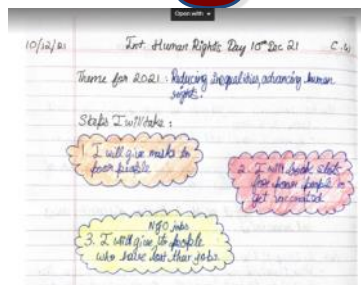 Open with
10/12/21 Int. Human Rights Day 10th Dec 21 C.W
Theme for 2021 : Reducing Inequalities, advancing human
rights.
Steps I will take :
1. I will give masks to
poor people
2. I will book slots
for poor people to
get vaccinated
NGO jobs
3. I will give to people
who have lost their jobs.